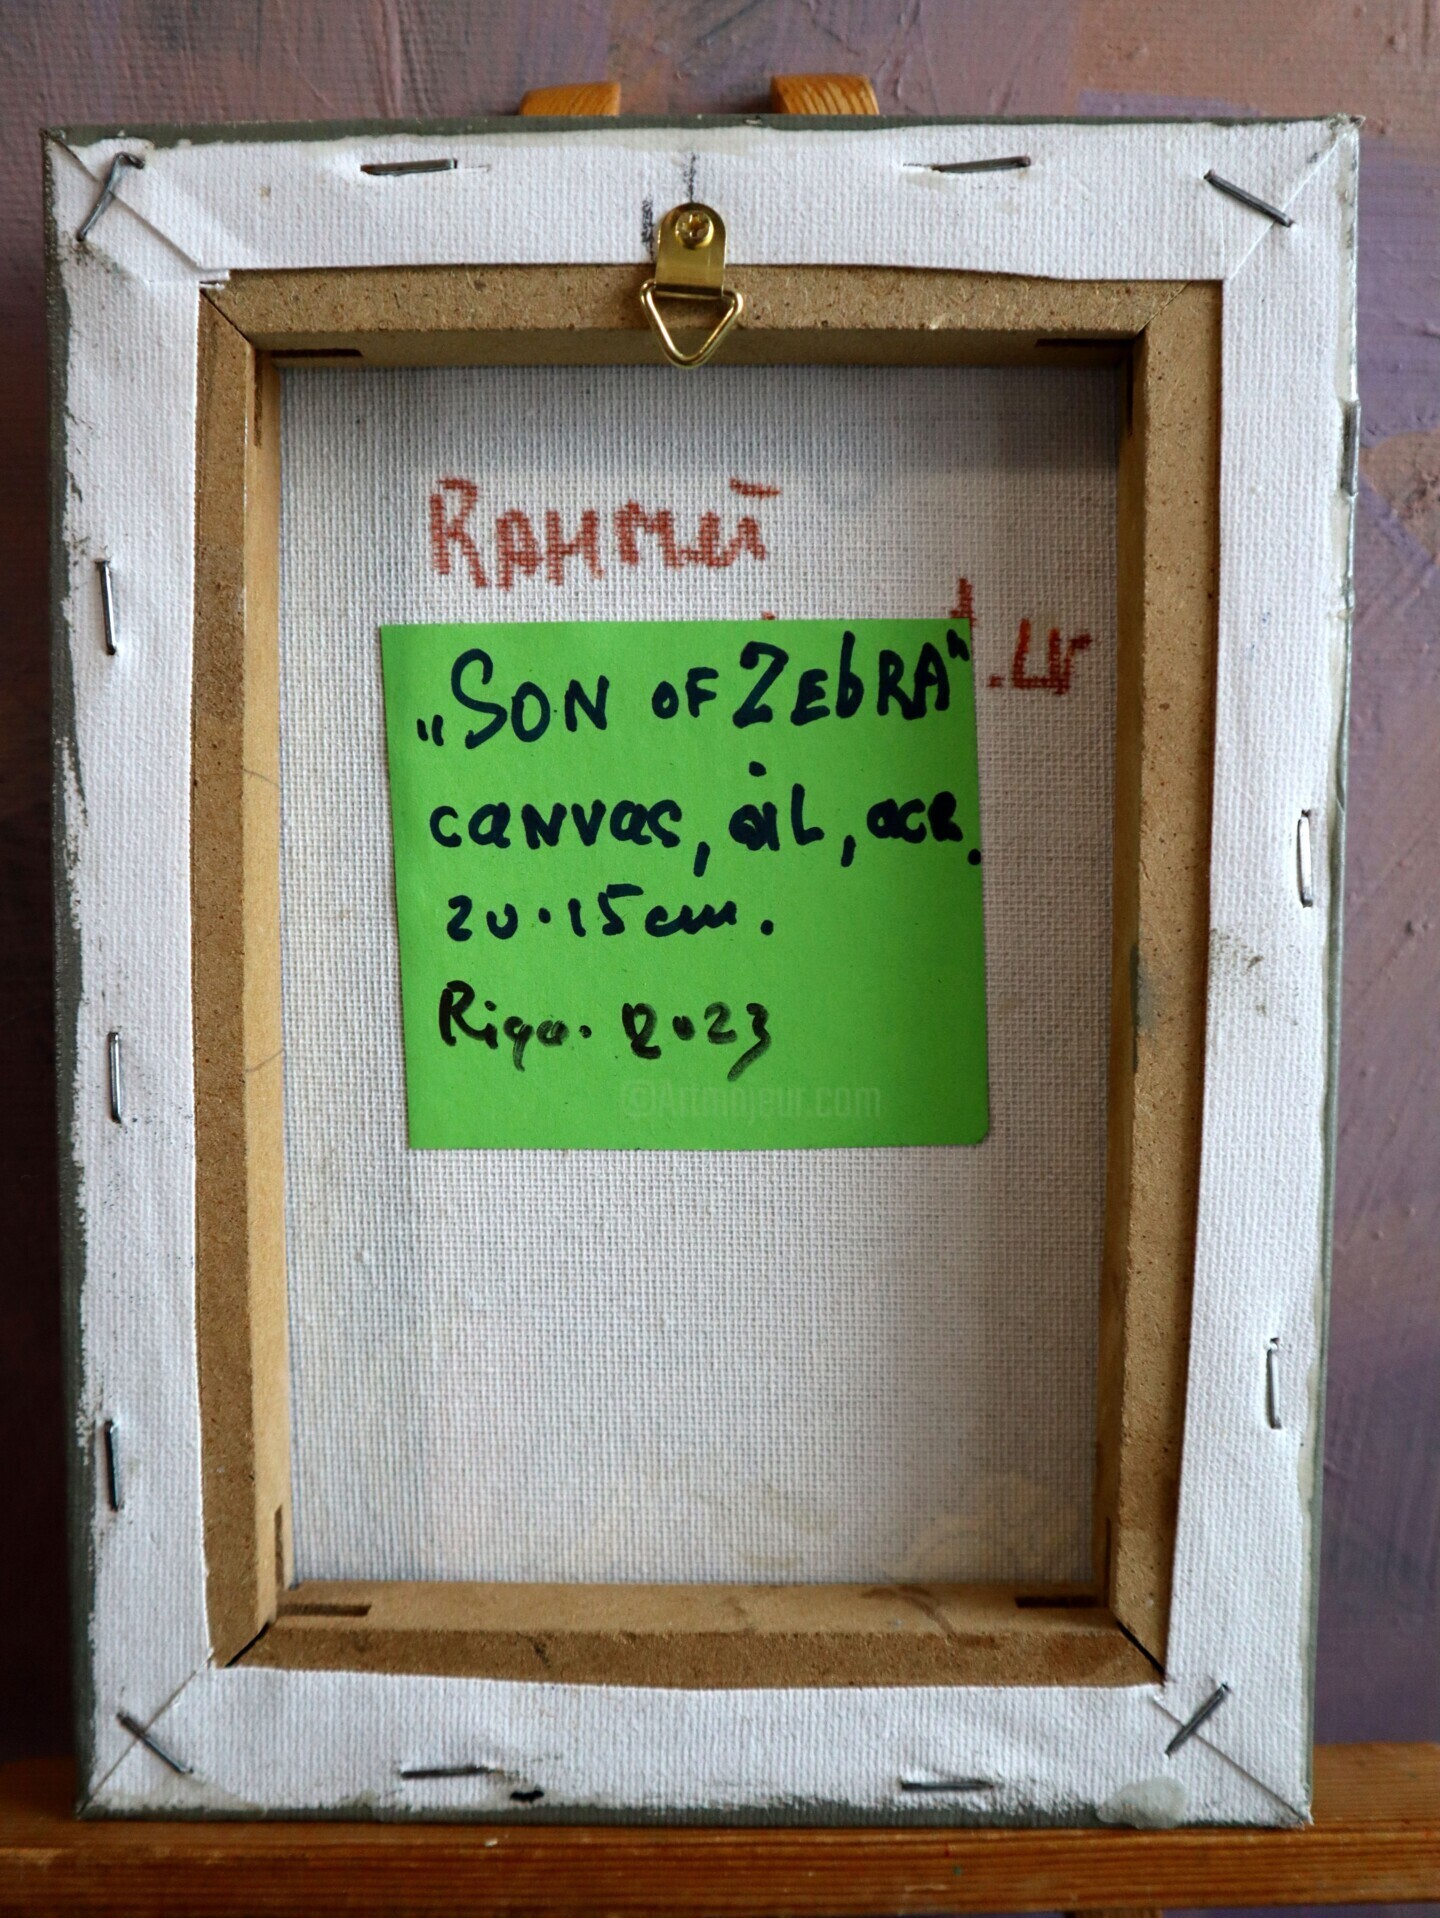 Rahmeī
.Lv
„SON OF ZEbRA“
canvas, oil, acr.
20·15cm.
Riga. 2023
©Artmajeur.com